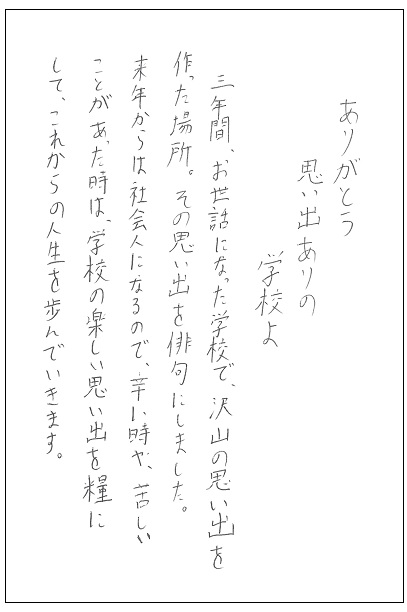 ありがとう
思い出ありの
学校よ
三年間、お世話になった学校で、沢山の思い出を
作った場所。その思い出を俳句にしました。
来年からは社会人になるので、辛い時や、苦しい
ことがあった時は、学校の楽しい思い出を糧に
して、これからの人生を歩んでいきます。